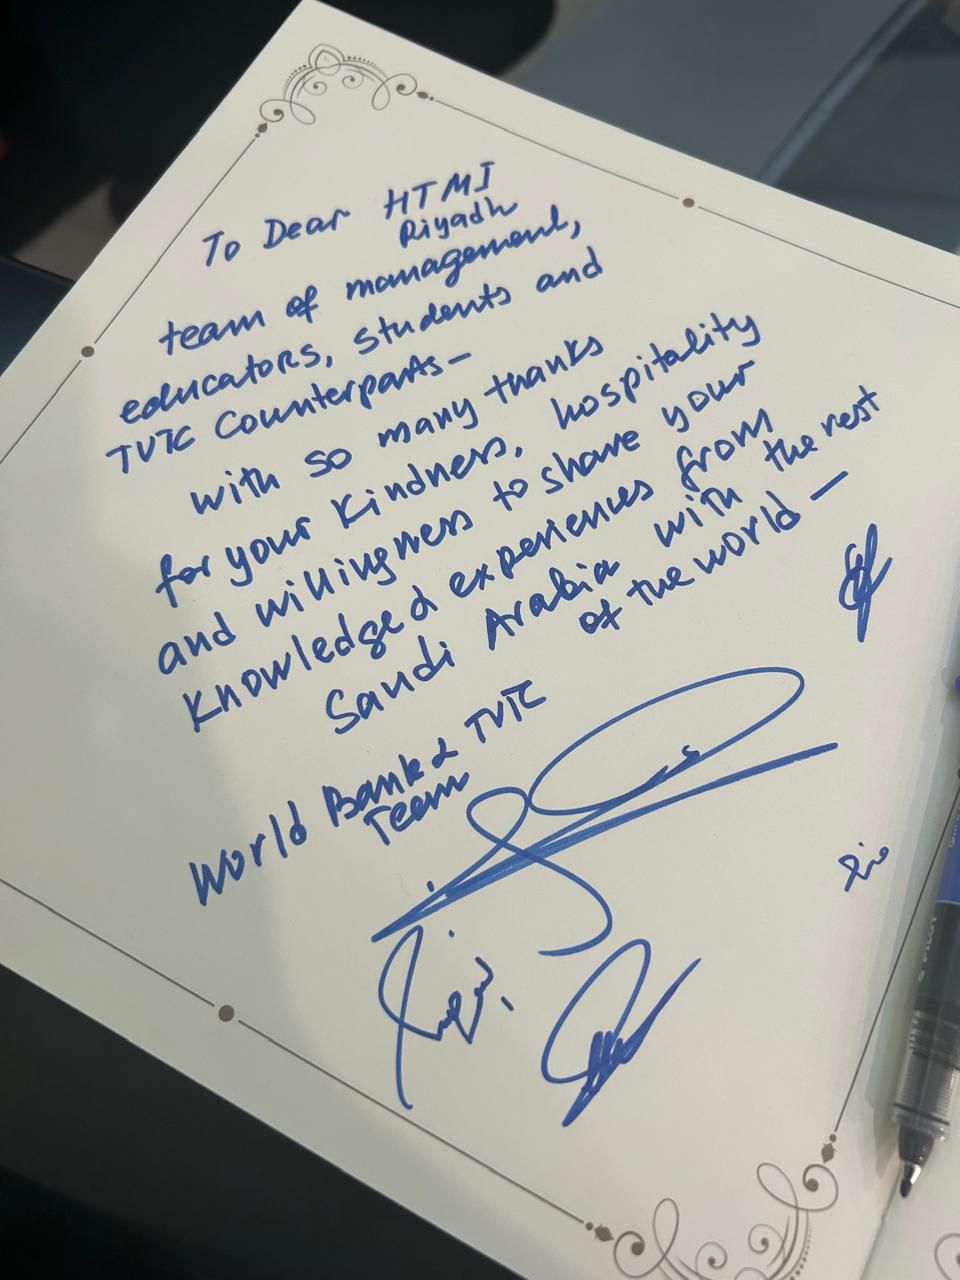 To Dear HTMI
Riyadh
team of management,
educators, students and
TVTC Counterparts –
with so many thanks
for your kindness, hospitality
and willingness to share your
knowledge & experiences from
Saudi Arabia with the rest
of the world –
World Bank & TVTC
Team
PILOT